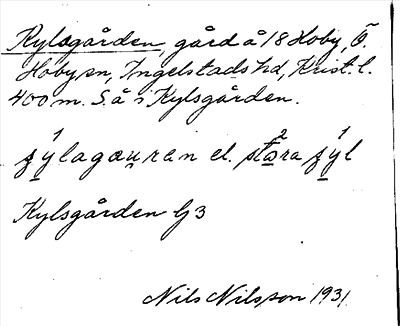 Kylsgården, gård å 18 Hoby, Ö.
Hoby sn, Ingelstads hd, Krist. l.
400 m. S. å s Kylsgården.
el. stora
Kylsgården G3
Nils Nilsson 1931.